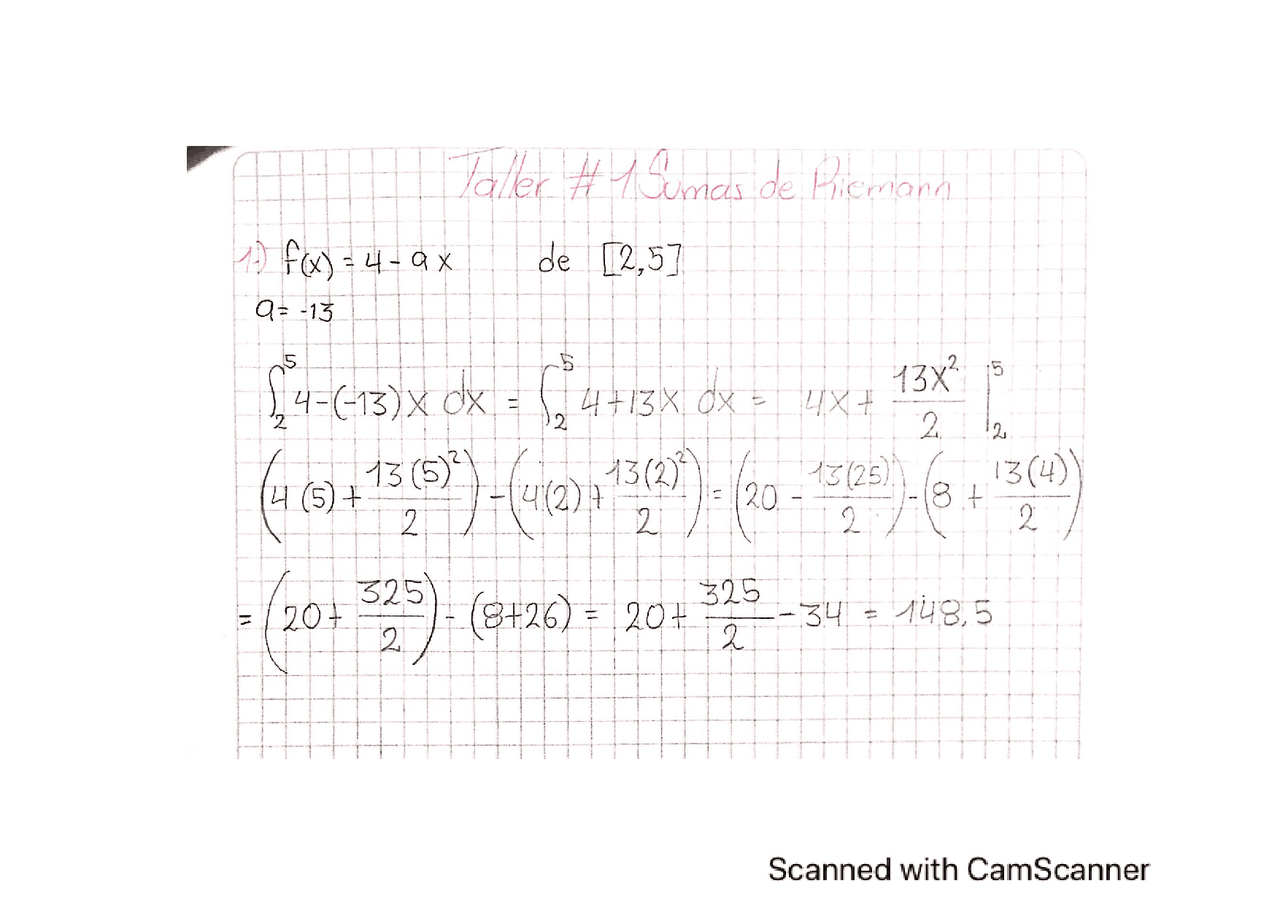 Taller # 1 Sumas de Riemann
1.) f(x) = 4 - ax de [2,5]
a = -13
∫₂⁵ 4-(-13)x dx = ∫₂⁵ 4+13x dx = 4x + 13x²/2 |₂⁵
(4(5) + 13(5)²/2) - (4(2) + 13(2)²/2) = (20 - 13(25)/2) - (8 + 13(4)/2)
= (20 + 325/2) - (8+26) = 20 + 325/2 - 34 = 148.5
Scanned with CamScanner